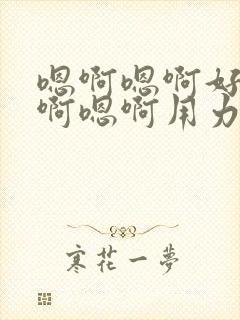 嗯啊嗯啊好
啊嗯啊用力
寒花一夢